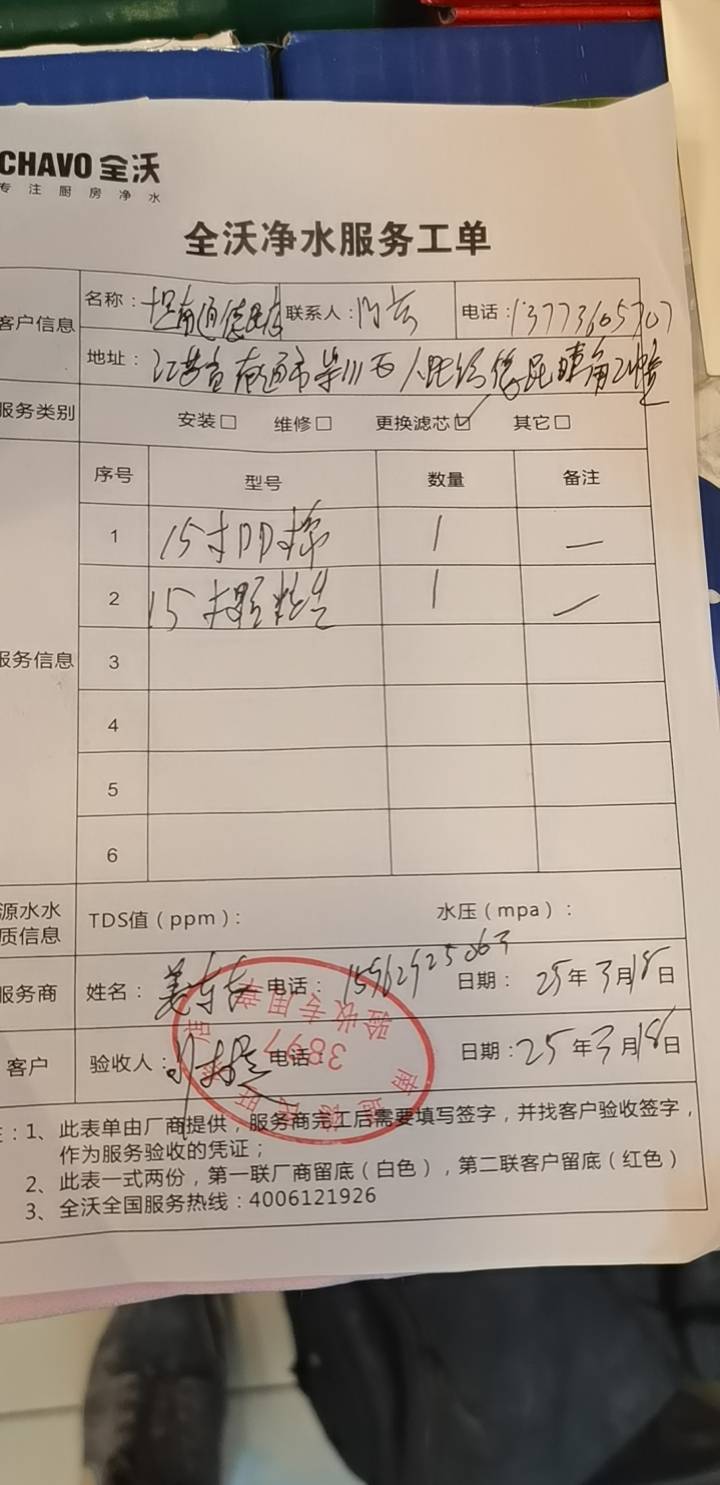 CHAVO 全沃
专注厨房净水
全沃净水服务工单
客户信息
名称： 南通德民店 联系人： 电话：13773605707
地址： 江苏省南通市崇川 人民路
服务类别 安装□ 维修□ 更换滤芯☑ 其它□
序号 型号 数量 备注
1 15寸PP棉 1 —
2 15寸颗粒 1 —
服务信息
3
4
5
6
源水水质信息 TDS值（ppm）： 水压（mpa）：
服务商 姓名： 电话：15962925063 日期：25年3月18日
客户 验收人： 电话 日期：25年3月18日
验收专用章
3897
：1、此表单由厂商提供，服务商完工后需要填写签字，并找客户验收签字，
作为服务验收的凭证；
2、此表一式两份，第一联厂商留底（白色），第二联客户留底（红色）
3、全沃全国服务热线：4006121926